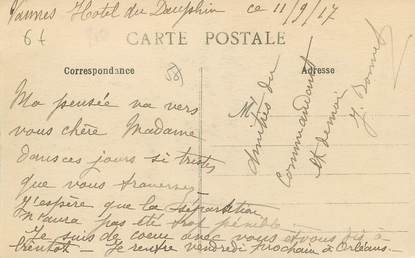 Vannes Hotel du Dauphin ce 11/9/17
67
CARTE POSTALE
Correspondance
58
Adresse
Ma pensée va vers
vous chère Madame
dans ces jours si tristes
que vous traversez
J'espère que la séparation
n'aura pas été trop pénible
Je suis de coeur avec vous et vous dis à
bientot - Je rentre vendredi prochain à Orléans
M
Amitiés du
Commandant
et de moi
J. Bonnet